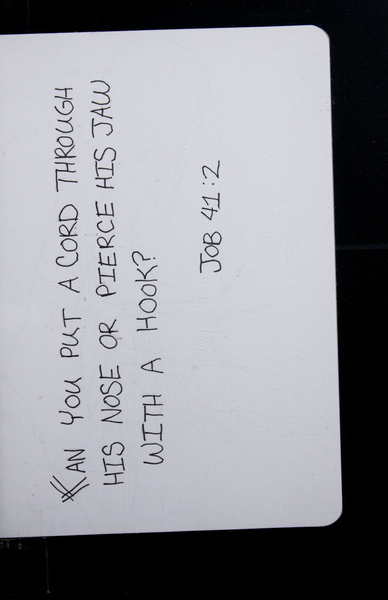 CAN YOU PUT A CORD THROUGH
HIS NOSE OR PIERCE HIS JAW
WITH A HOOK?
JOB 41:2